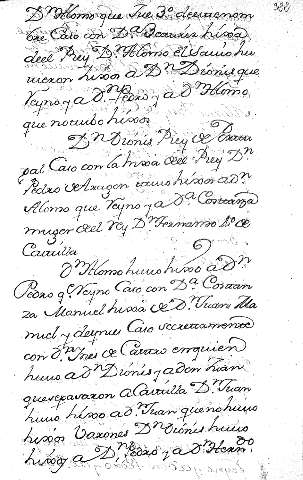 382
Dⁿ Alonso que fue 3º de este nom
bre Caso con Dª Beatriz hixa
de el Rey Dⁿ Alonso el Sauio hu
uieron hixos a Dⁿ Dionis que
Reyno y a Dⁿ Pedro y a Dⁿ Alonso
que no tubo hixos
Dⁿ Dionis Rey de Portu
gal Caso con la hixa de el Rey Dⁿ
Pedro de Aragon tuuo hixos a Dⁿ
Alonso que Reyno y a Dª Constanza
muger de el Rey Dⁿ Fernando 4º de
Castilla
Dⁿ Alonso huuo hixo a Dⁿ
Pedro qᵉ Reyno Caso con Dª Constan
za Manuel hixa de Dⁿ Juan Ma
nuel y despues Caso secretamente
con Dª Ines de Castro en quien
huuo a Dⁿ Dionis y a don Juan
que se pasaron a Castilla Dⁿ Juan
huuo hixo a Dⁿ Juan que no huuo
hixos Varones Dⁿ Dionis huuo
hixos a Dⁿ Pedro y a Dⁿ Hernᵈᵒ